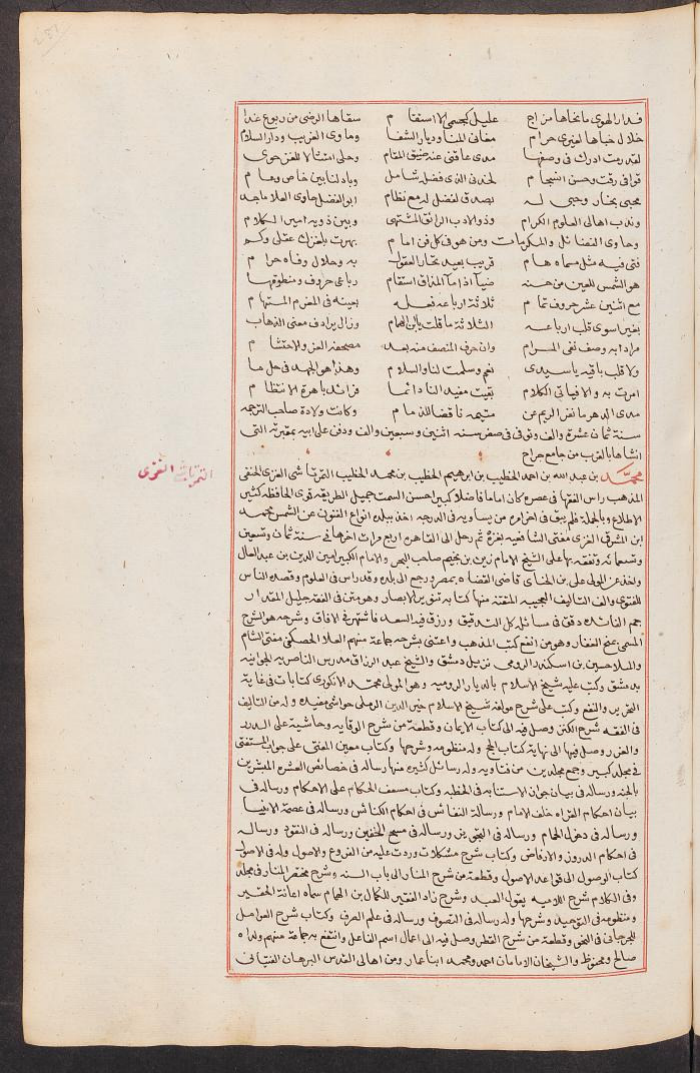 فدار الهوى مانحاها مزاج عليل كجسمى الا اسقام سقاها الرضى من ربوع غدا
خلال خباها لغيرى حرام مغانى المنا وديار الشفا وماوى الغريب ودار السلام
لقد رمت ادرك فى وصفها مدى عاقنى عنه ضيق المقام وحلى امتثالا للغز حوى
قوافى رقت وحسن انسجام لخدنى الذى فضله شامل وبادلنا بين خاص وعام
محبى بخار وحبى له تصدق لفضل له مع نظام ابو الفضل حاوى العلا ماجد
وندب اهالى العلوم الكرام وذو الادب الرائق المشتهى وبين ذويه امير الكلام
وحاوى الفضائل والمكرمات ومن هو فى كل فن امام بهرت بلغزك عقلى وكم
فتى فيه مثل مسماه هام قريب بعيد تحار العقول به وحلال وفاه حرام
هو الشمس للعين من حسنه ضيا اذا ما المذاق استقام رباعى حروف ومنطوقها
مع اثنين عشر حروف تمام ثلاثة ارباعه فعله بعينه فى المغرم المستهام
بغير سوى قلب ارباعه الثلاثة ما قلت يابن الهمام وزال يرادف معنى الذهاب
مراد به وصف نفى المرام وان حرف المنصف منه بعد مصحفه العز والاحتشام
ولا قلب باقيه ياسيدى نعم وسلمت لنا والسلام وهذا هو الجهد فى حل ما
امرت به والافياتى الكلام بقيت مفيد النا دائما فرائد باهرة الانتظام
مدى الدهر ما نفر الريم عن متيمه ناقضا للذمام وكانت ولادة صاحب الترجمه
سنة ثمان عشرة والف وتوفى فى صفر سنه اثنين وسبعين والف ودفن على ابيه بمقبرته التى
انشاها بالقرب من جامع جراح
التمرتاشى الغزى
محمد بن عبد الله بن احمد الخطيب بن ابرهيم الخطيب بن محمد الخطيب التمرتاشى الغزى الحنفى
المذهب راس الفقها فى عصره كان اماما فاضلا كبيرا حسن السمت جميل الطريقه قوى الحافظه كثير
الاطلاع وبالجملة فلم يبق فى اخر امره من يساويه فى الدرجه اخذ ببلده انواع الفنون عن الشمس محمد
ابن المشرقى الغزى مفتى الشافعيه بغزة ثم رحل الى القاهرة اربع مرات اخرها فى سنة ثمان وتسعين
وتسعمائه وتفقه بها على الشيخ الامام زين بن نجيم صاحب البحر والامام الكبير امين الدين بن عبد العال
واخذ عن المولى على بن الحناى قاضى القضاه بمصر ورجع الى بلده وقد راس فى العلوم وقصده الناس
للفتوى والف التاليف العجيبه المتقنه منها كتابه تنوير الابصار وهو متن فى الفقه جليل المقدار
جم الفائده دقق فى مسائله كل التدقيق ورزق فيه السعد فاشتهر فى الافاق وشرحه هو الشرح
المسمى بمنح الغفار وهو من انفع كتب المذهب واعتنى بشرحه جماعة منهم العلا الحصكفى مفتى الشام
والملا حسين بن اسكندر الرومى نزيل دمشق والشيخ عبد الرزاق مدرس الناصريه الجوانيه
بدمشق وكتب عليه شيخ الاسلام بالديار الروميه وهو المولى محمد الانكورى كتابات فى غاية
التحرير والنفع وكتب على شرح مولفه شيخ الاسلام خير الدين الرملى حواشى مفيده وله من التاليف
فى الفقه شرح الكنز وصل فيه الى كتاب الايمان وقطعة من شرح الوقايه وحاشية على الدرر
والغرر وصل فيها الى نهاية كتاب الحج وله منظومه وشرحها وكتاب معين المفتى على جواب المستفتى
فى مجلد كبير وجمع مجلدين من فتاويه وله رسائل كثيره منها رساله فى خصائص العشره المبشرين
بالجنه ورساله فى بيان جواز الاستنابه فى الخطبه وكتاب مسعف الحكام على الاحكام ورساله فى
بيان احكام القراه خلف الامام ورسالة النفائس فى احكام الكنائس ورساله فى عصمة الانبيا
ورساله فى دخول الحمام ورساله فى التجويز ورساله فى مسح الخفين ورساله فى النقود ورساله
فى احكام الدروز والارفاض وكتاب شرح مشكلات وردت عليه من الفروع والاصول وله فى الاصول
كتاب الوصول الى قواعد الاصول وقطعة من شرح المنار الى باب السنه وشرح مختصر المنار فى مجلد
وفى الكلام شرح اللاميه يقول العبد وشرح زاد الفقير للكمال بن الهمام سماه اعانة الحقير
ومنظومه فى التوحيد وشرحها وله رساله فى التصوف ورساله فى علم الصرف وكتاب شرح العوامل
للجرجانى فى النحو وقطعة من شرح القطر وصل فيه الى اعمال اسم الفاعل وانتفع به جماعة منهم ولداه
صالح ومحفوظ والشيخان الامامان احمد ومحمد ابنا عمار ومن اهالى القدس البرهان الفتيانى